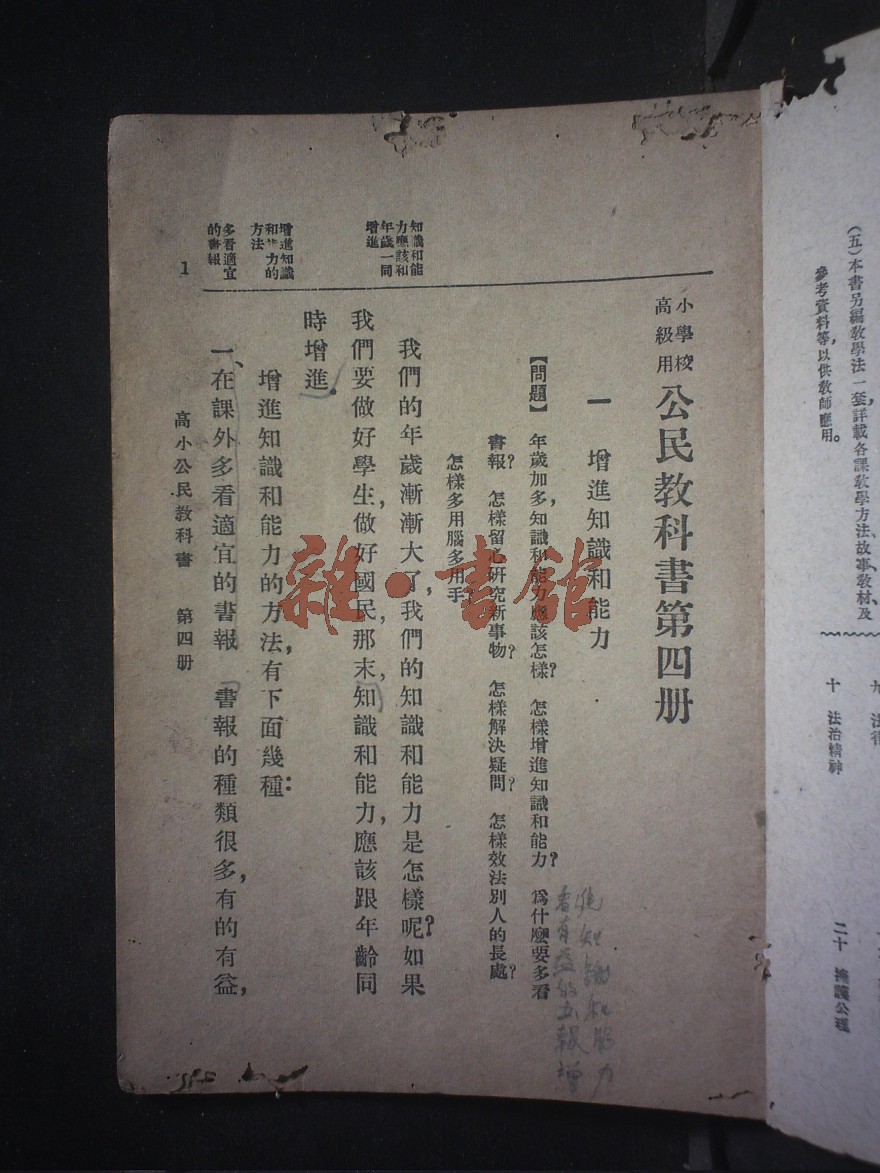 (五)本書另編敎學法一套,詳載各課敎學方法、故事敎材、及
參考資料等,以供敎師應用。
十 法治精神
二十 擁護公理
小學校
高級用
公民教科書第四册
一 增進知識和能力
【問題】 年歲加多,知識和能力應該怎樣? 怎樣增進知識和能力? 爲什麼要多看
書報? 怎樣留心研究新事物? 怎樣解決疑問? 怎樣效法別人的長處?
怎樣多用腦多用手?
知識和能
力應該和
年歲一同
增進
我們的年歲漸漸大了,我們的知識和能力是怎樣呢?如果
我們要做好學生,做好國民,那末,知識和能力,應該跟年齡同
時增進。
增進知識
和能力的
方法
增進知識和能力的方法,有下面幾種:
多看適宜
的書報
一、在課外多看適宜的書報 書報的種類很多,有的有益,
1
高小公民教科書 第四册
看有益的书報增
進知識和能力
雜·書館